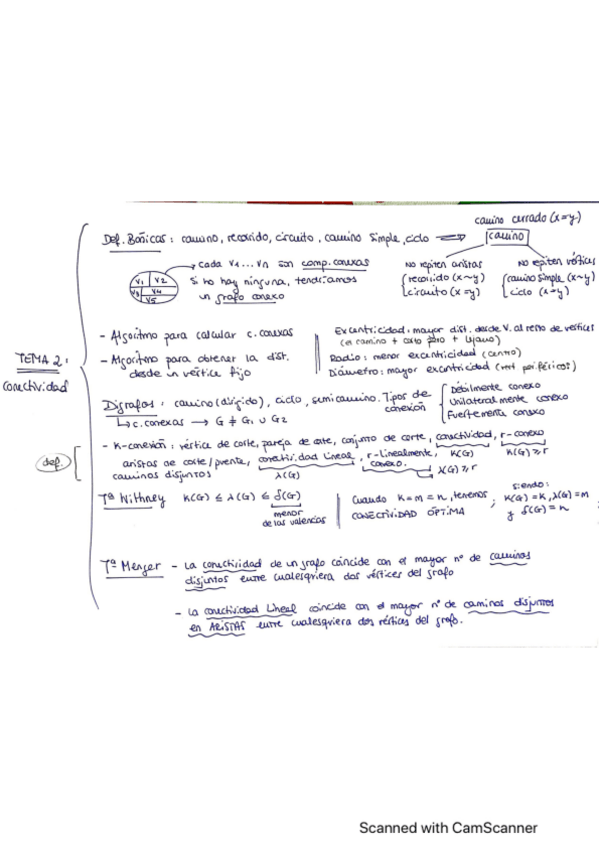 camino cerrado (x=y)
Def. Básicas: camino, recorrido, circuito, camino simple, ciclo → camino
cada V1...Vn son comp. conexas
Si no hay ninguna, tendríamos
un grafo conexo
V1 V2
V3 V4
V5
No repiten aristas
recorrido (x~y)
circuito (x=y)
No repiten vértices
camino simple (x~y)
ciclo (x=y)
TEMA 2:
Conectividad
- Algoritmo para calcular c. conexas
- Algoritmo para obtener la dist.
desde un vértice fijo
Excentricidad: mayor dist. desde V. al resto de vértices
(el camino + corto pero + lejano)
Radio: menor excentricidad (centro)
Diámetro: mayor excentricidad (vert periféricos)
Digrafos: camino (dirigido), ciclo, semicamino. Tipos de
conexión
Débilmente conexo
Unilateralmente conexo
Fuertemente conexo
c. conexas → G ≠ G1 ∪ G2
def.
- K-conexión: vértice de corte, pareja de corte, conjunto de corte, conectividad, r-conexo
K(G) K(G) ≥ r
aristas de corte/puente, conectividad lineal, r-linealmente
conexo.
caminos disjuntos λ(G) λ(G) ≥ r
Tª Withney K(G) ≤ λ(G) ≤ δ(G)
menor
de las valencias
Cuando K=m=n, tenemos
CONECTIVIDAD ÓPTIMA
siendo:
K(G)=K, λ(G)=m
y δ(G)=n
Tª Menger - La conectividad de un grafo coincide con el mayor nº de caminos
disjuntos entre cualesquiera dos vértices del grafo
- La conectividad Lineal coincide con el mayor nº de caminos disjuntos
en ARISTAS entre cualesquiera dos vértices del grafo.
Scanned with CamScanner